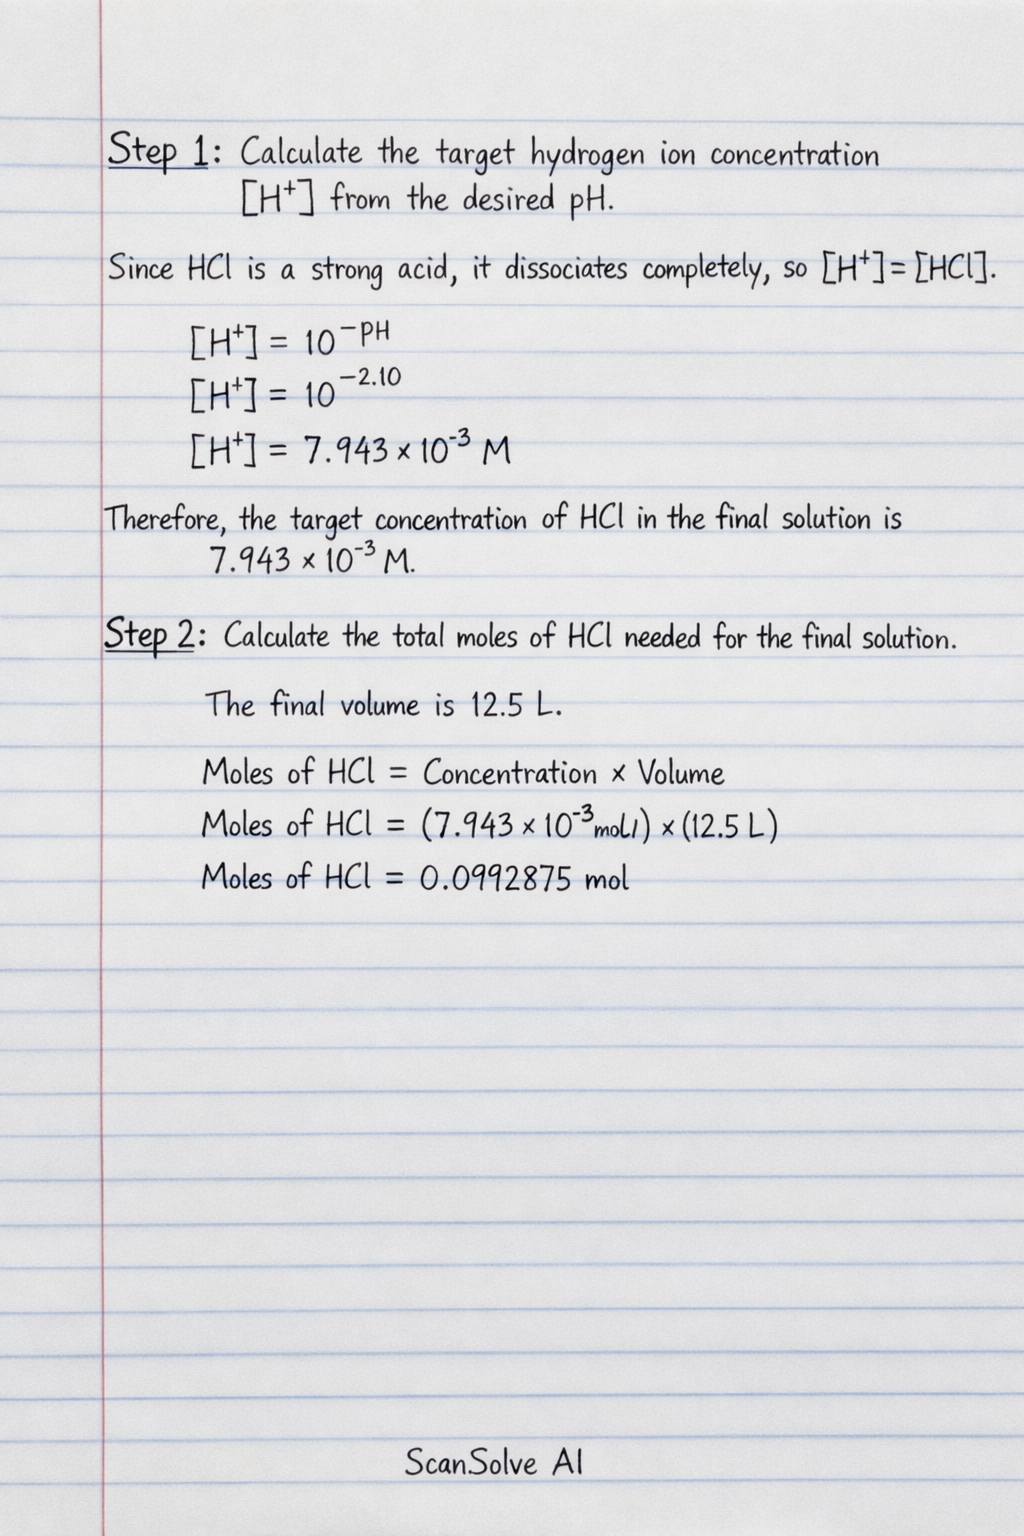 Step 1: Calculate the target hydrogen ion concentration
[H⁺] from the desired pH.
Since HCl is a strong acid, it dissociates completely, so [H⁺] = [HCl].
[H⁺] = 10⁻ᵖᴴ
[H⁺] = 10⁻²·¹⁰
[H⁺] = 7.943 × 10⁻³ M
Therefore, the target concentration of HCl in the final solution is
7.943 × 10⁻³ M.
Step 2: Calculate the total moles of HCl needed for the final solution.
The final volume is 12.5 L.
Moles of HCl = Concentration × Volume
Moles of HCl = (7.943 × 10⁻³ mol/) × (12.5 L)
Moles of HCl = 0.0992875 mol
ScanSolve AI